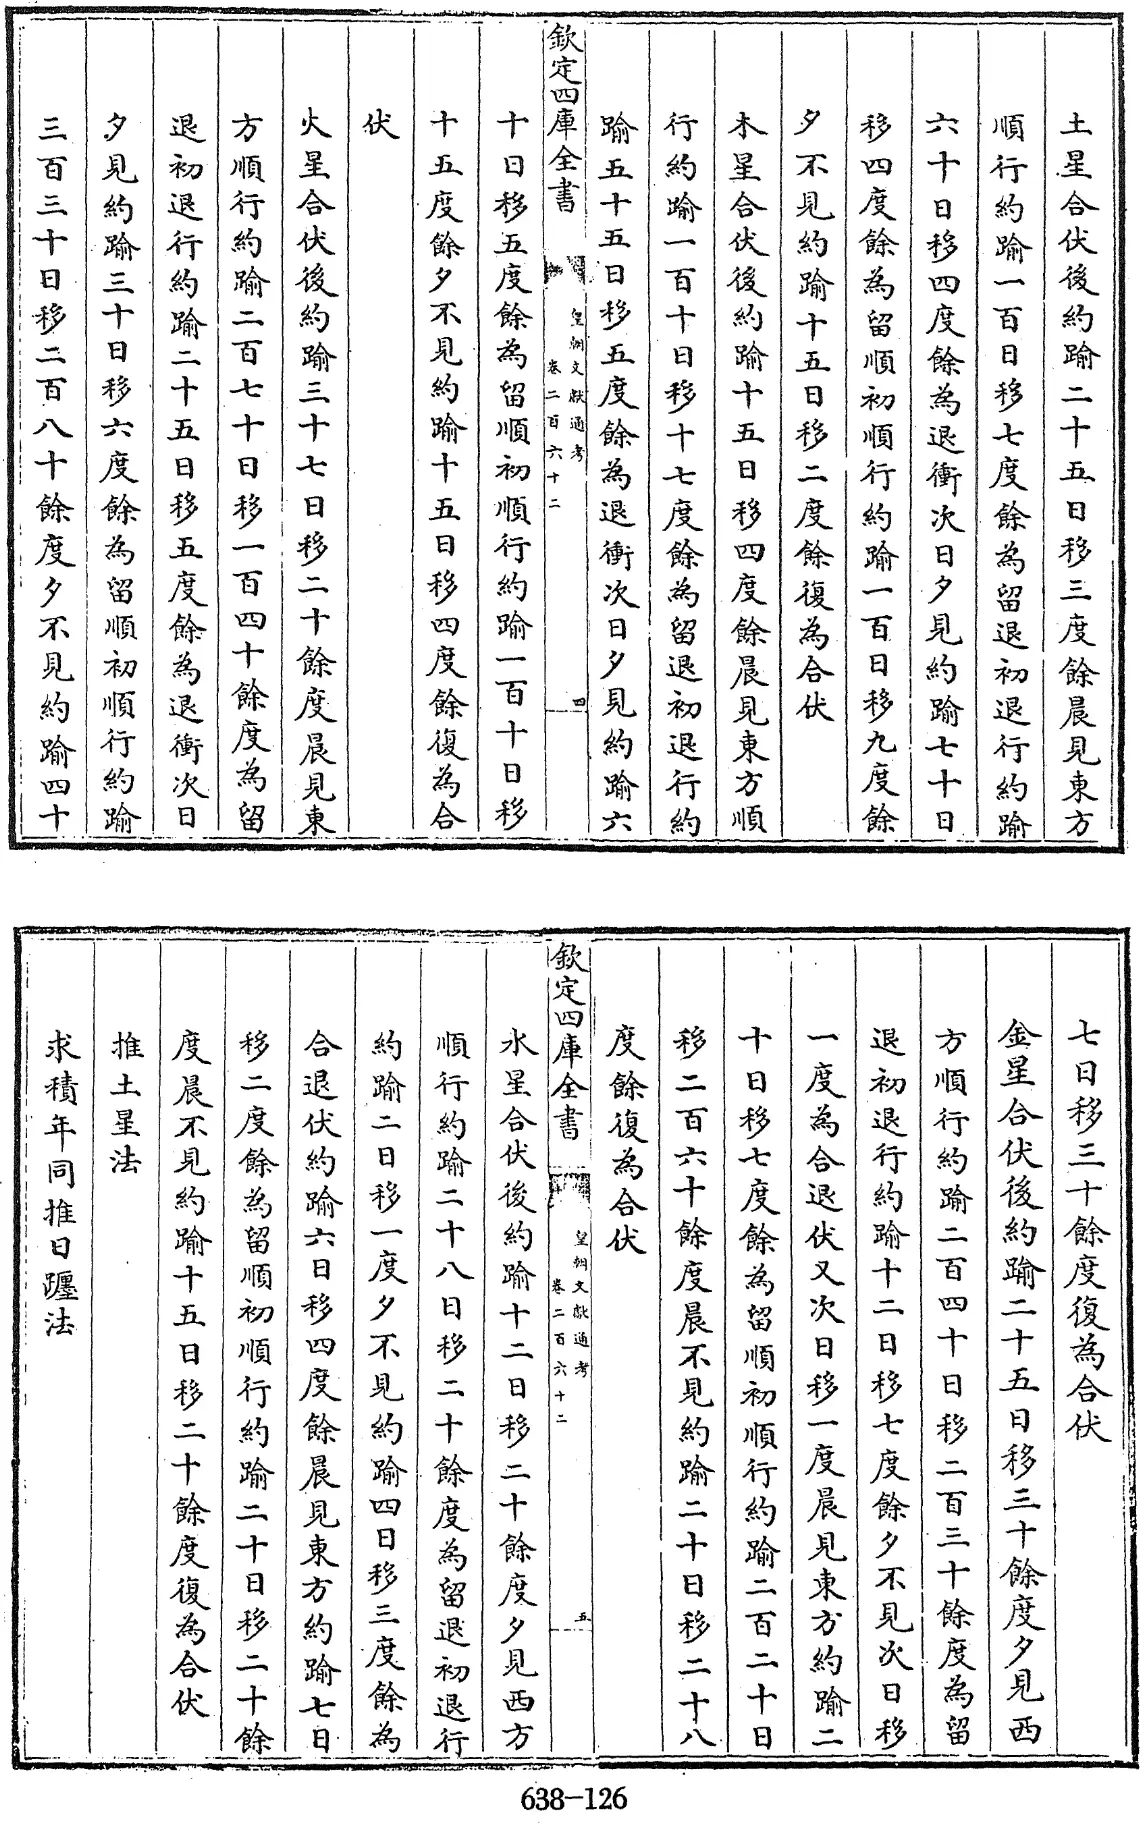 土星合伏後約踰二十五日移三度餘晨見東方
順行約踰一百日移七度餘為留退初退行約踰
六十日移四度餘為退衝次日夕見約踰七十日
移四度餘為留順初順行約踰一百日移九度餘
夕不見約踰十五日移二度餘復為合伏
木星合伏後約踰十五日移四度餘晨見東方順
行約踰一百十日移十七度餘為留退初退行約
踰五十五日移五度餘為退衝次日夕見約踰六
欽定四庫全書
皇朝文獻通考
卷二百六十二
四
十日移五度餘為留順初順行約踰一百十日移
十五度餘夕不見約踰十五日移四度餘復為合
伏
火星合伏後約踰三十七日移二十餘度晨見東
方順行約踰二百七十日移一百四十餘度為留
退初退行約踰二十五日移五度餘為退衝次日
夕見約踰三十日移六度餘為留順初順行約踰
三百三十日移二百八十餘度夕不見約踰四十
七日移三十餘度復為合伏
金星合伏後約踰二十五日移三十餘度夕見西
方順行約踰二百四十日移二百三十餘度為留
退初退行約踰十二日移七度餘夕不見次日移
一度為合退伏又次日移一度晨見東方約踰二
十日移七度餘為留順初順行約踰二百二十日
移二百六十餘度晨不見約踰二十日移二十八
度餘復為合伏
欽定四庫全書
皇朝文獻通考
卷二百六十二
五
水星合伏後約踰十二日移二十餘度夕見西方
順行約踰二十八日移二十餘度為留退初退行
約踰二日移一度夕不見約踰四日移三度餘為
合退伏約踰六日移四度餘晨見東方約踰七日
移二度餘為留順初順行約踰二十日移二十餘
度晨不見約踰十五日移二十餘度復為合伏
推土星法
求積年同推日躔法
638-126